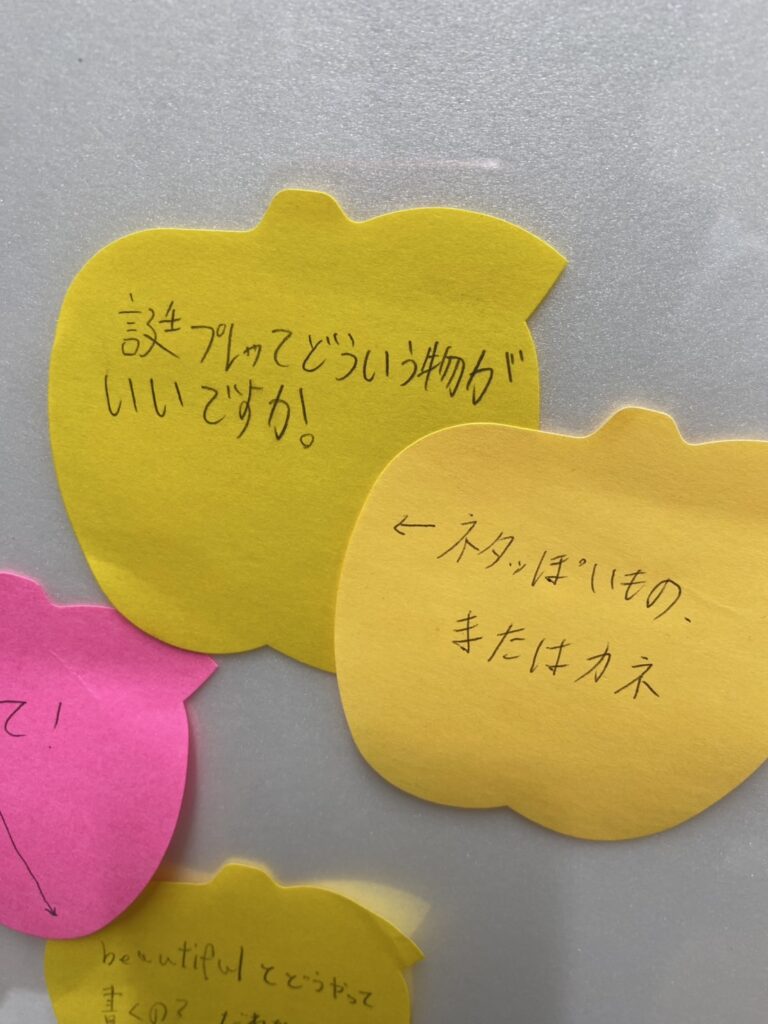 誕プレってどういう物が
いいですか!
← ネタッぽいもの、
またはカネ
て!
beautiful とどうやって
書くの?